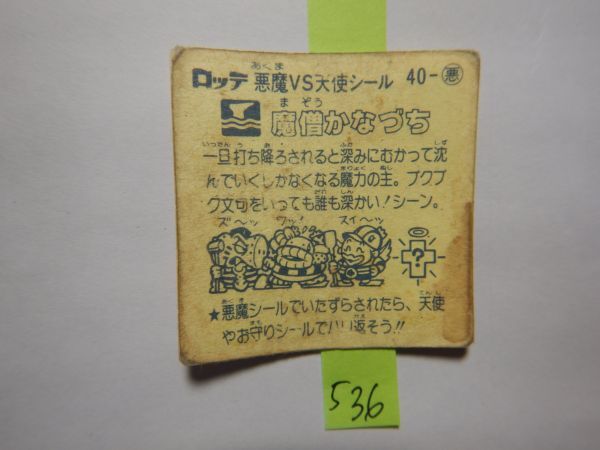 ロッテ 悪魔VS天使シール 40-悪
あくま
魔僧かなづち
まぞう
一旦打ち降ろされると深みにむかって沈
んでいくしかなくなる魔力の主。ブクブ
ク文句をいっても誰も深かい!シーン。
ズ〜ッ ワッ! スイ〜ッ
?
★悪魔シールでいたずらされたら、天使
やお守りシールでハリ返そう!!
536